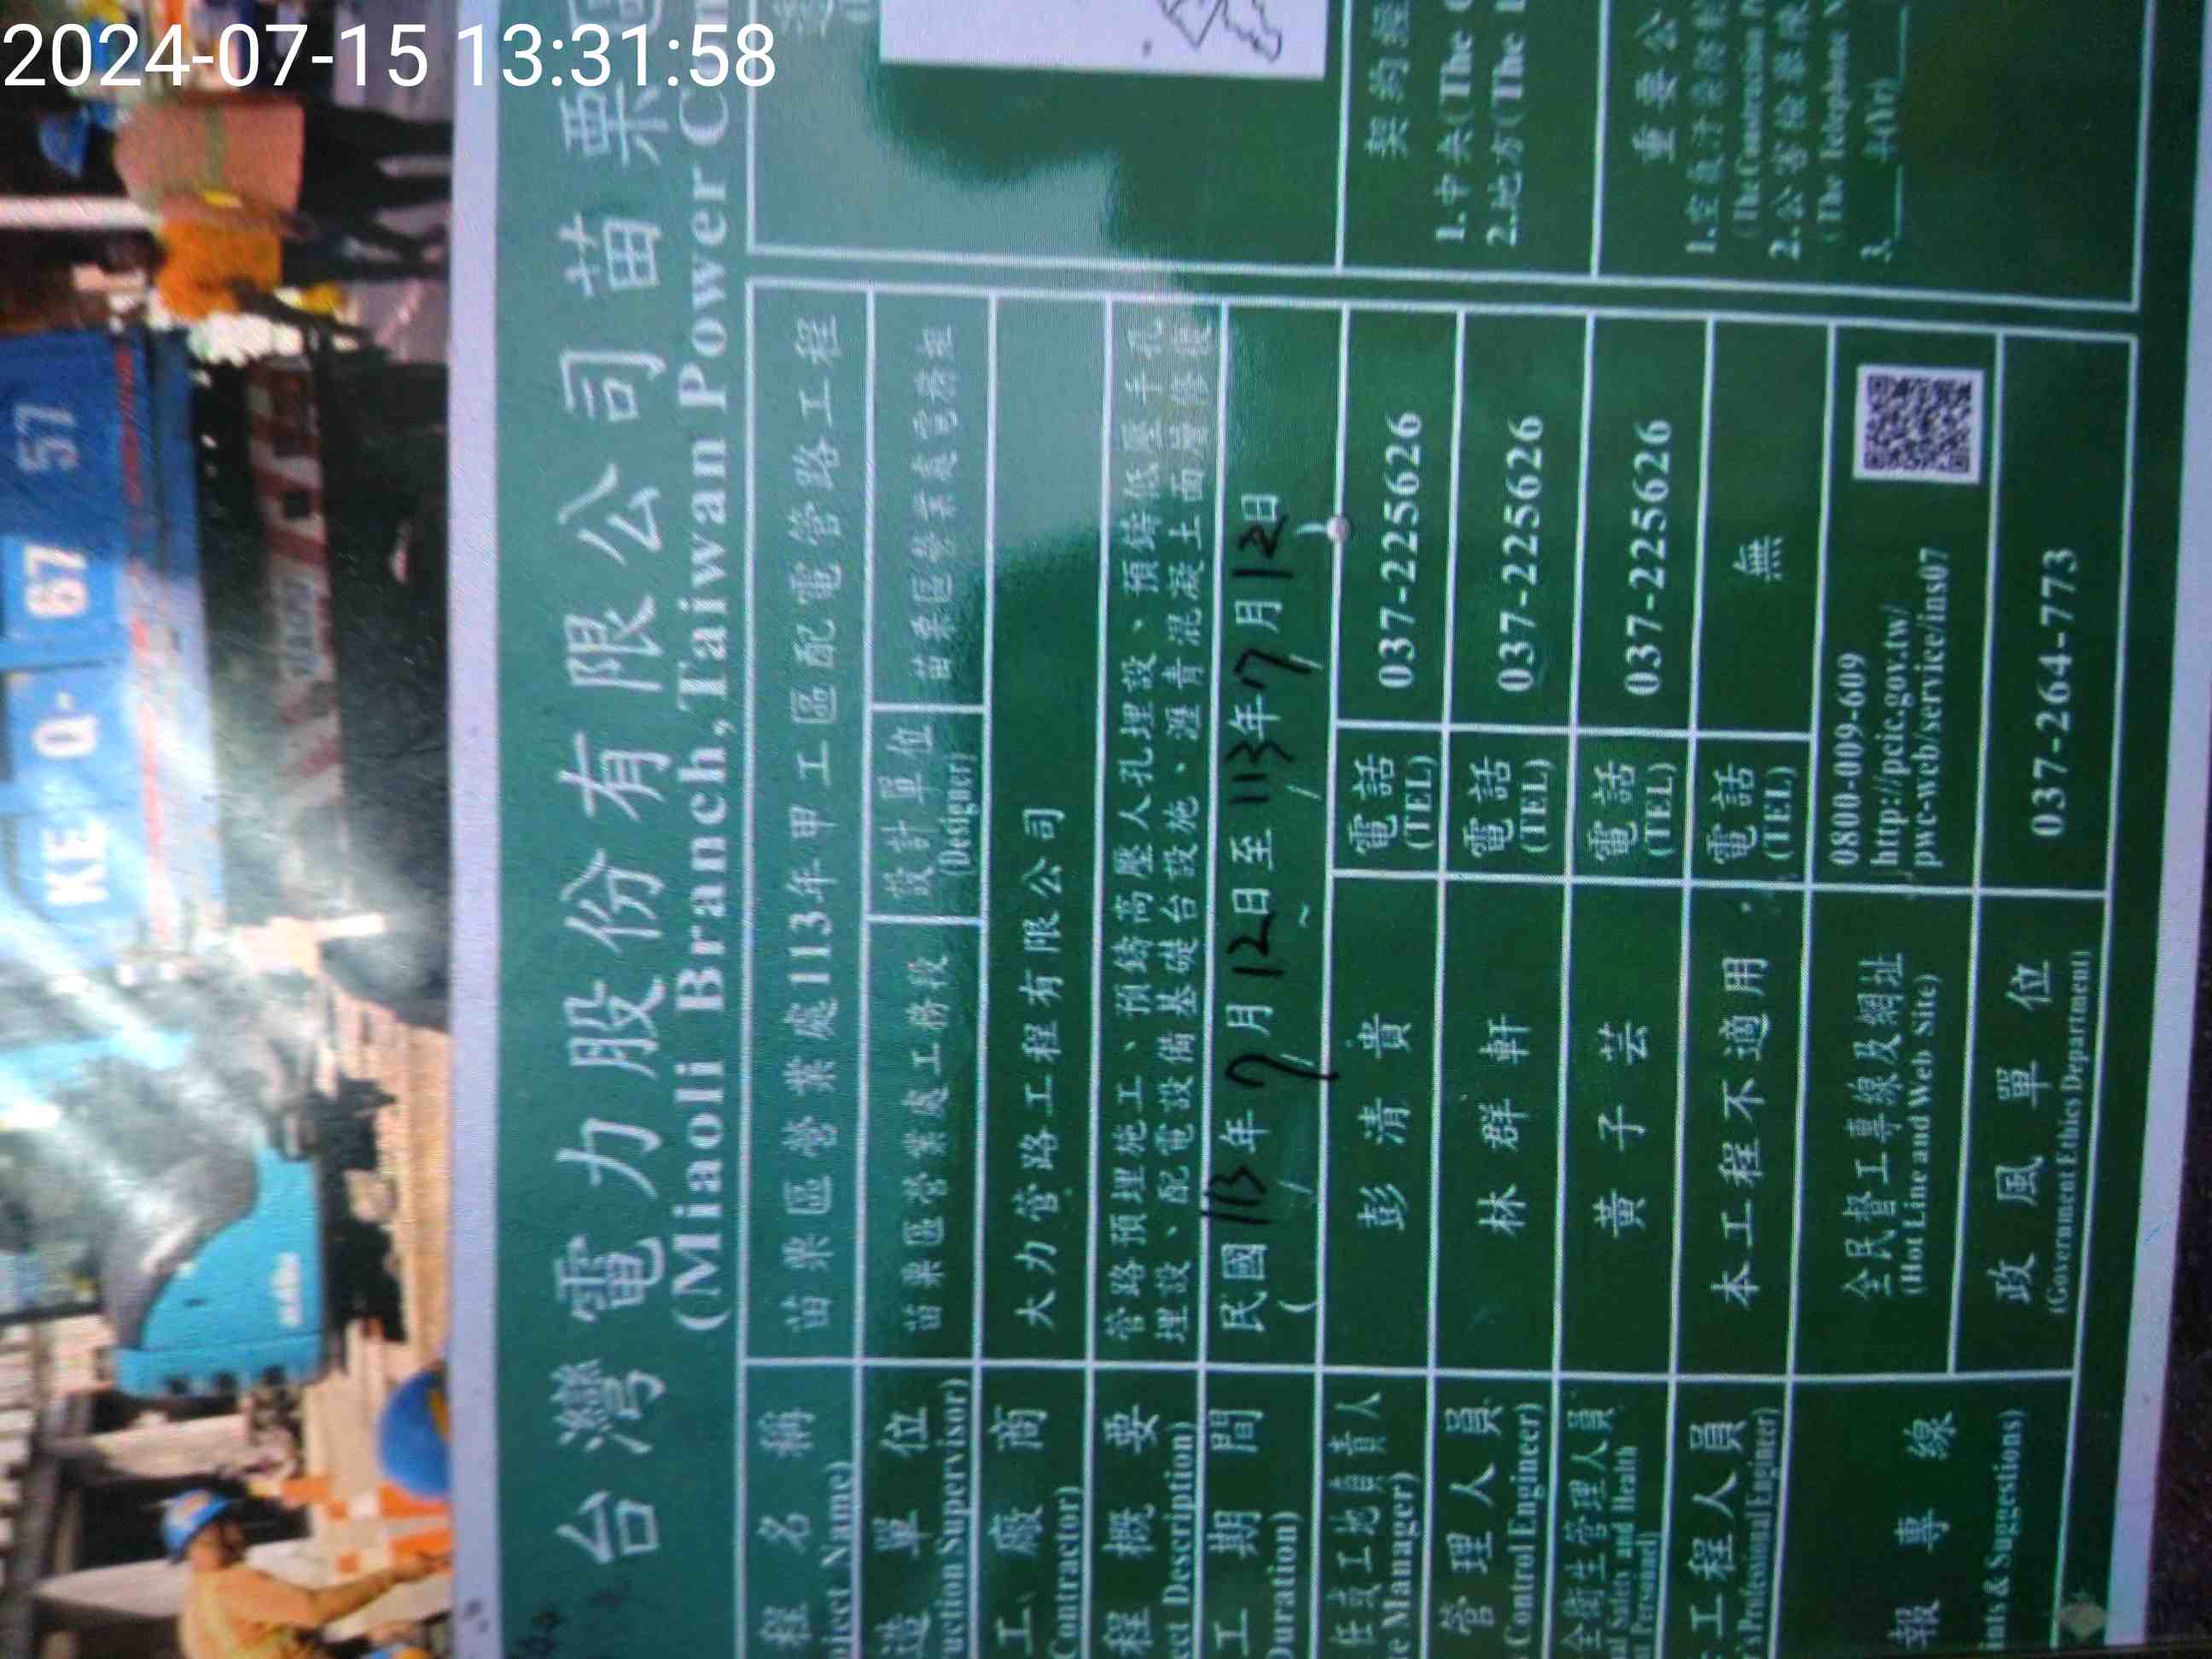 2024-07-15 13:31:58
KE Q- 67 57
台灣電力股份有限公司苗栗
(Miaoli Branch,Taiwan Power C
程名稱
ject Name)
苗栗區營業處113年甲工區配電管路工程
造單位
uction Supervisor)
苗栗區營業處工務段
設計單位
(Designer)
苗栗區營業處電務組
工廠商
Contractor)
大力管路工程有限公司
程概要
ect Description)
管路預埋施工、預鑄高壓人孔埋設、預鑄低壓手孔
埋設、配電設備基礎台設施、瀝青混凝土面層修復
工期間
Duration)
民國113年7月12日至113年7月12日
( )
任或工地負責人
e Manager)
彭清貴
電話
(TEL)
037-225626
管理人員
Control Engineer)
林群軒
電話
(TEL)
037-225626
全衛生管理人員
nal Safety and Health
nt Personnel)
黃子芸
電話
(TEL)
037-225626
工程人員
's Professional Engineer)
本工程不適用
電話
(TEL)
無
報專線
ints & Suggestions)
全民督工專線及網址
(Hot Line and Web Site)
0800-009-609
http://pcic.gov.tw/
pwc-web/service/ins07
政風單位
(Government Ethics Department)
037-264-773
契約經
1.中央(The
2.地方(The
重要公
1.空氣汙染防制
(The Construction
2.公害檢舉
(The Telephone N
3. 年(Yr)